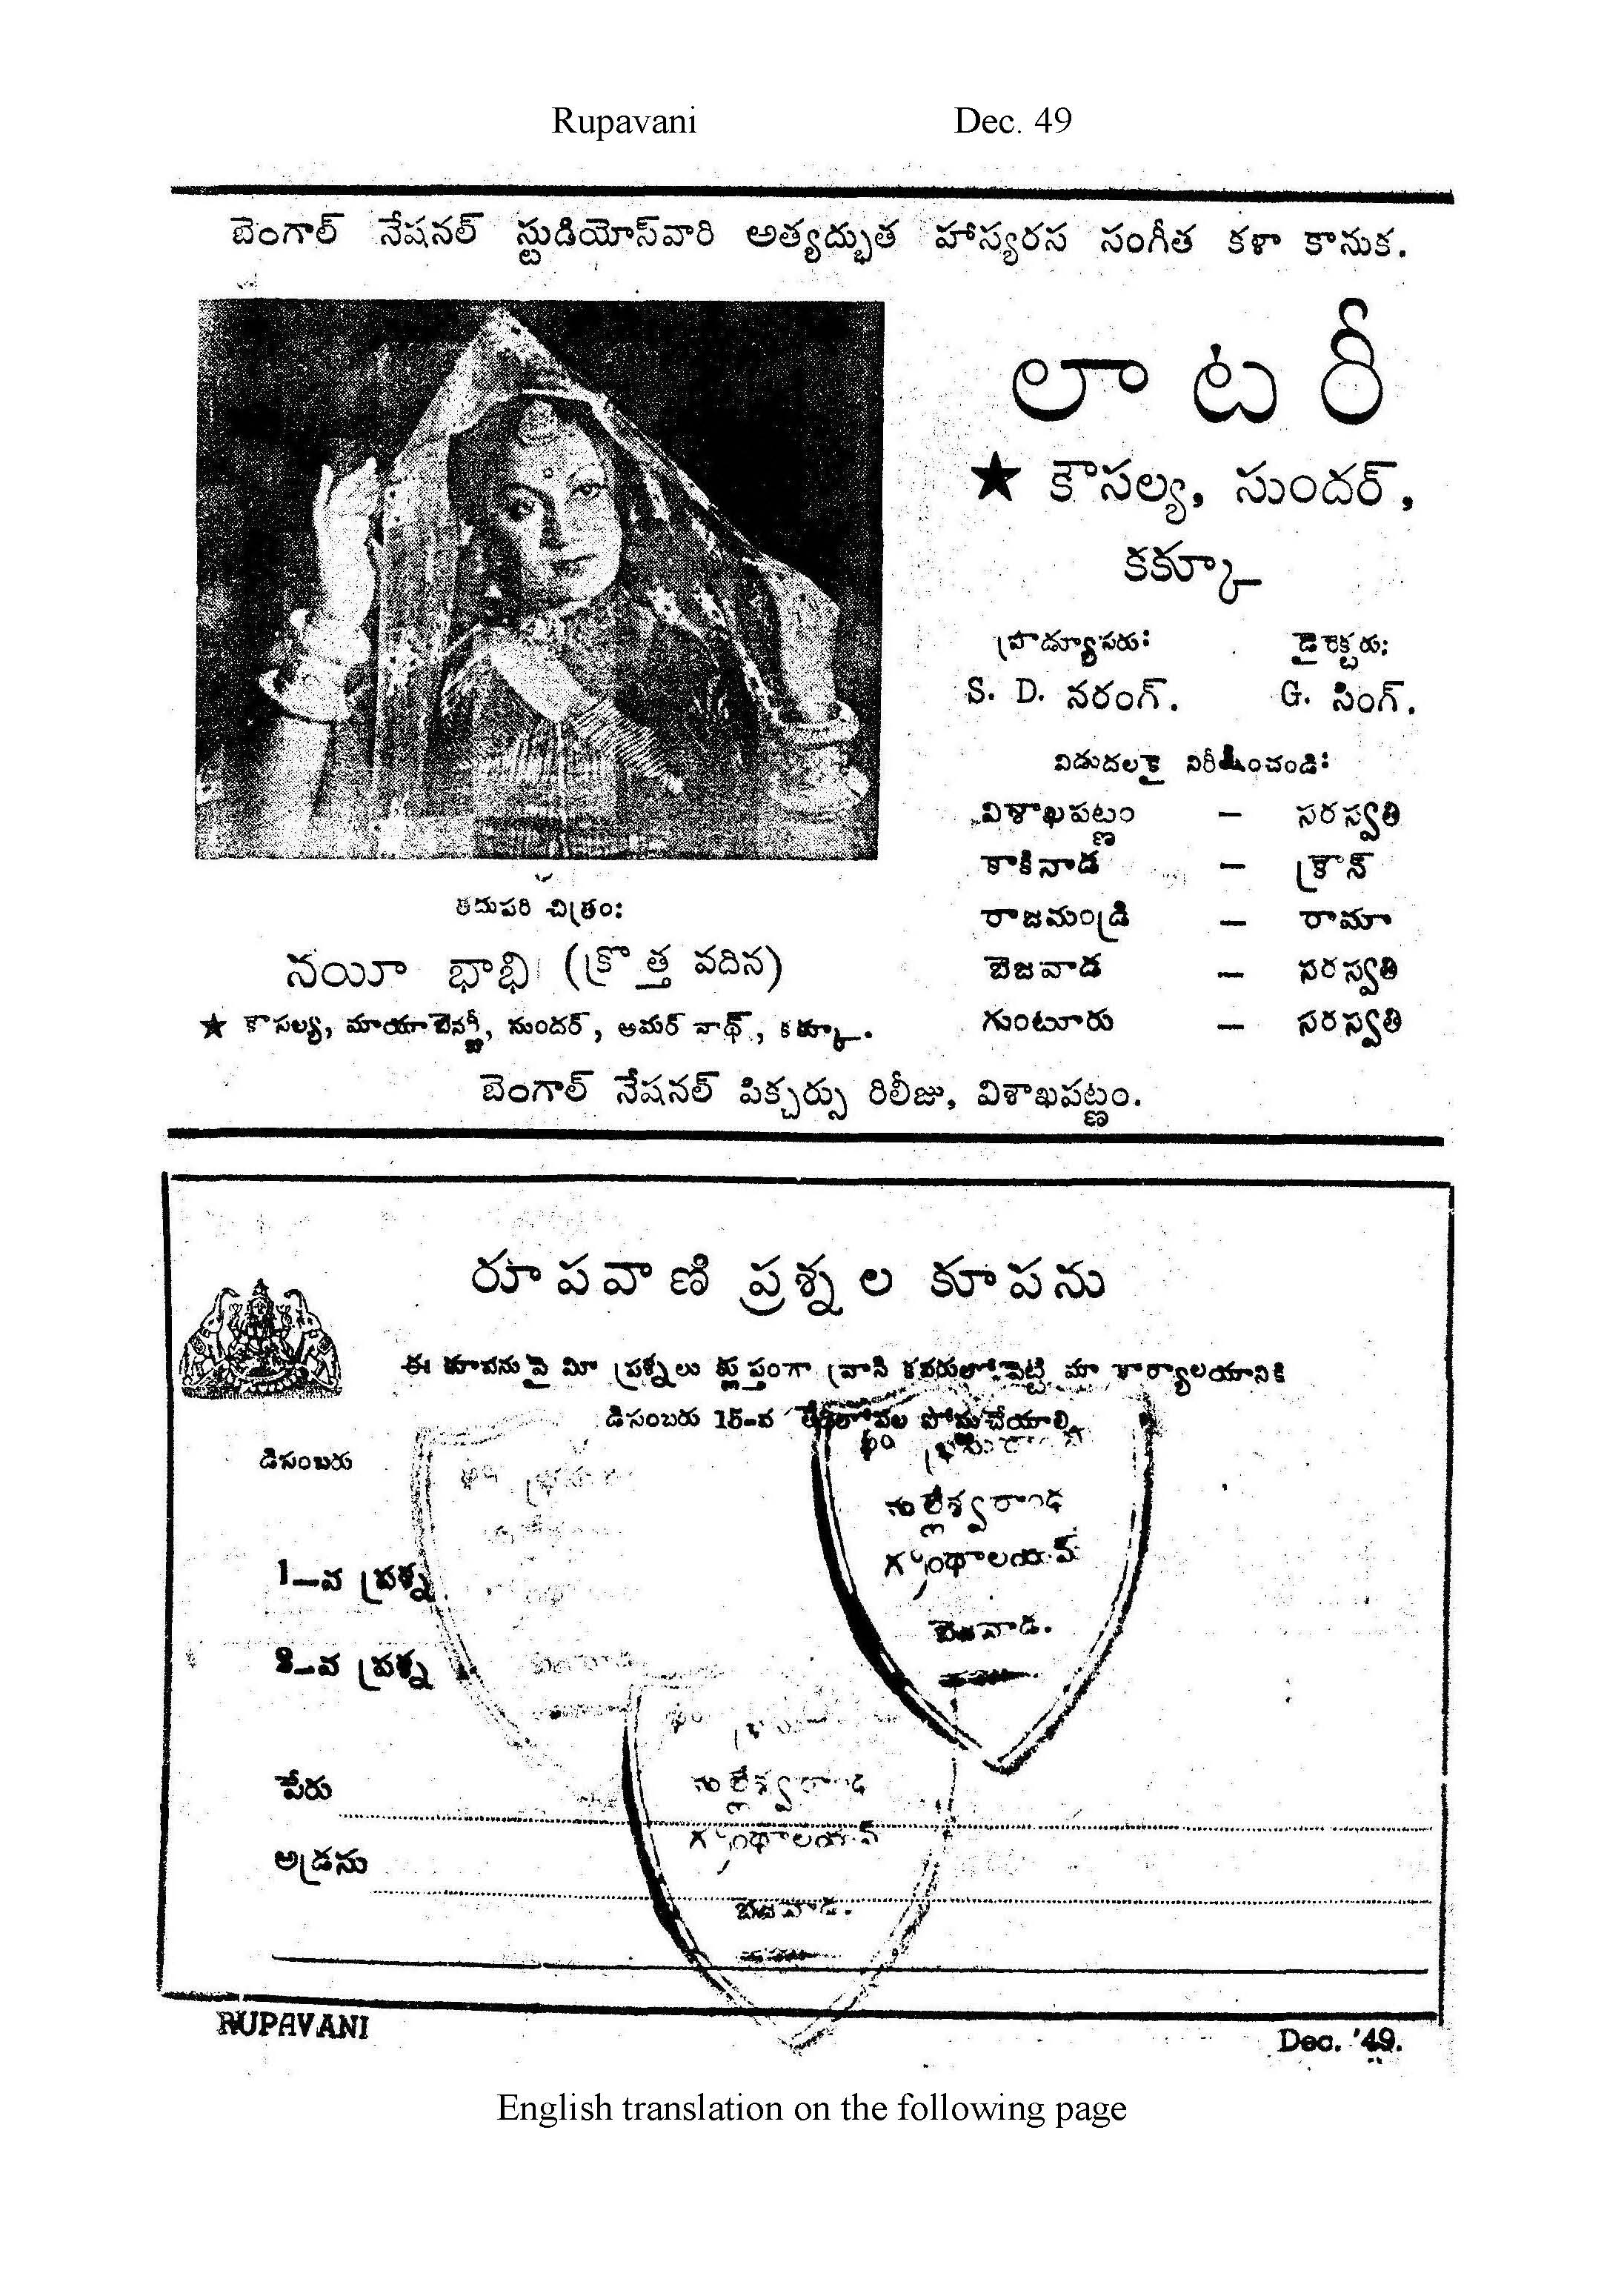 Rupavani Dec. 49
బెంగాల్ నేషనల్ స్టుడియోస్‌వారి అత్యద్భుత హాస్యరస సంగీత కళా కానుక.
లాటరీ
★ కౌసల్య, సుందర్,
కక్కూ
ప్రొడ్యూసరు: డైరెక్టరు:
S. D. నరంగ్. G. సింగ్.
విడుదలకై నిరీక్షించండి:
విశాఖపట్ణం — సరస్వతి
కాకినాడ — క్రౌన్
రాజమండ్రి — రామా
బెజవాడ — సరస్వతి
గుంటూరు — సరస్వతి
తదుపరి చిత్రం:
నయీ భాభి (క్రొత్త వదిన)
★ కౌసల్య, మాయాబెనర్జీ, సుందర్, అమర్ నాథ్, కక్కూ.
బెంగాల్ నేషనల్ పిక్చర్సు రిలీజు, విశాఖపట్ణం.
రూపవాణి ప్రశ్నల కూపను
ఈ కూపనుపై మీ ప్రశ్నలు క్లుప్తంగా వ్రాసి కవరులోపెట్టి మా కార్యాలయానికి
డిసంబరు 15-వ తేదీలోపల పోస్టుచేయాలి
డిసంబరు
1—వ ప్రశ్న
2—వ ప్రశ్న
గ్రంథాలయమ్
బెజవాడ.
పేరు
అడ్రసు
గ్రంథాలయమ్
బెజవాడ.
RUPAVANI Dec. '49.
English translation on the following page